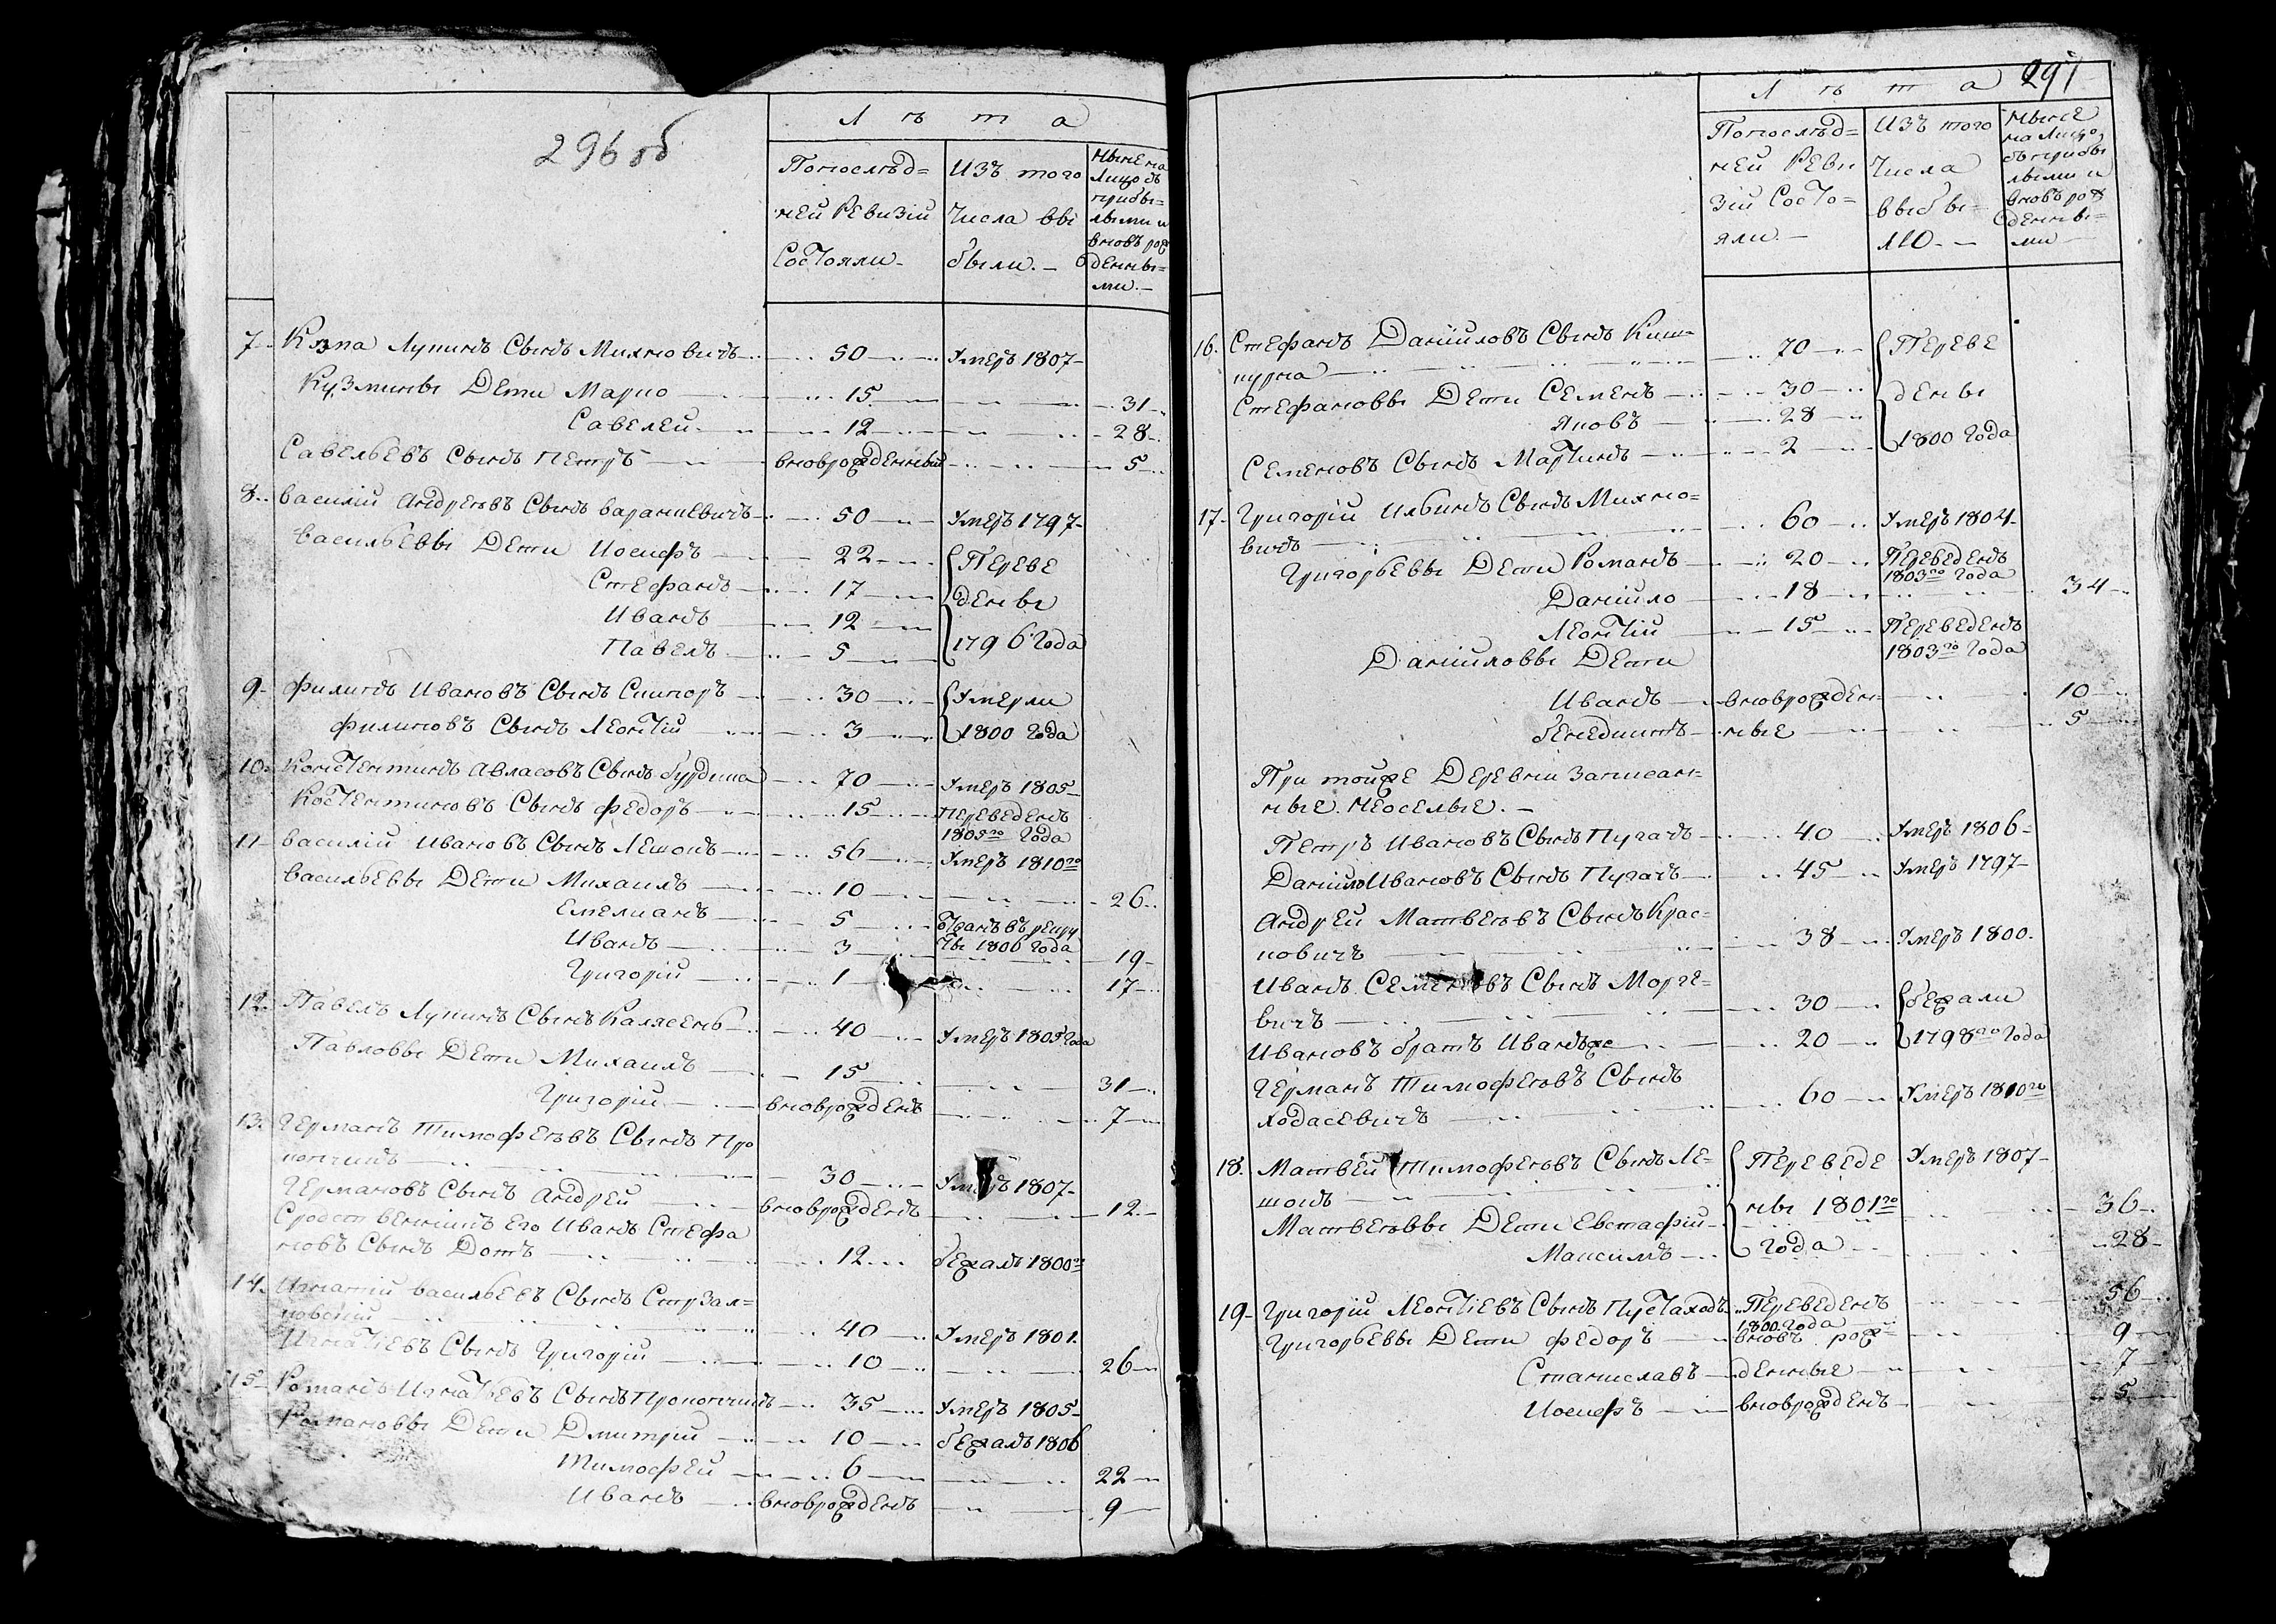 296 об
Лѣта
Попослѣд=
ней Ревизіи
Состояли
Изъ того
Числа вы
были.
Ныне на
Лицо съ
прибы=
лыми и
вновь рож
денны=
ми.
7 Кузма Лупинъ Сынъ Михновичъ 50 Умеръ 1807
Кузмины Дети Марко 15 31
Савелей 12 28
Савельевъ Сынъ Петръ вновьрожденный 5
8 Василій Андреевъ Сынъ Вараниевичъ 50 Умеръ 1797
Васильевы Дети Иосифъ 22 Переве
Стефанъ 17 дены
Иванъ 12
Павелъ 5 1796 Года
9 Филипъ Ивановъ Сынъ Сикоръ 30 Умерли
Филиповъ Сынъ Леонтій 3 1800 Года
10 Констентинъ Авласовъ Сынъ Бурдика 70 Умеръ 1805
Костентиновъ Сынъ Федоръ 15 Переведенъ
1805го Года
11 Василій Ивановъ Сынъ Лешокъ 56 Умеръ 1810го
Васильевы Дети Михаилъ 10 26
Емелианъ 5 Отданъ въ рекру
Иванъ 3 ты 1806 Года 19
Григорій 1 17
12 Павелъ Лупинъ Сынъ Каляень 40 Умеръ 1805 Года
Павловы Дети Михаилъ 15 31
Григорій вновьрожденъ 7
13 Германъ Тимофеевъ Сынъ Про
копчикъ 30 Умеръ 1807
Германовъ Сынъ Андрей вновьрожденъ 12
Сродственникъ Его Иванъ Стефа
новъ Сынъ Дотъ 12 бежалъ 1800го
14 Игнатій Васильевъ Сынъ Стрзал=
ковскій 40 Умеръ 1801.
Игнатіевъ Сынъ Григорій 10 26
15 Романъ Игнатьевъ Сынъ Прокопчикъ 35 Умеръ 1805
Романовы Дети Дмитрій 10 бежалъ 1806
Тимофей 6 22
Иванъ вновьрожденъ 9
291
Лѣта
Попослѣд=
ней Реви
зіи Состо=
яли
Изъ того
Числа
выбы=
ло
Ныне
на Лицо
съ прибы
лыми и
вновь рож
денны=
ми
16. Стефанъ Даниловъ Сынъ Киш=
курна 70 Переве
Стефановы Дети Семенъ 30 дены
Яковъ 28 1800 Года
Семеновъ Сынъ Мартинъ 2
17 Григорій Ильинъ Сынъ Михно=
вичъ 60 Умеръ 1804
Григорьевы Дети Романъ 20 Переведенъ
1803го Года
Данійло 18 34
Леонтій 15 Переведенъ
1803го Года
Даниловы Дети
Иванъ вновьрожден= 10
Бенедиктъ ные 5
При тойже Деревни Записан=
ные неоселые.
Петръ Ивановъ Сынъ Пугачъ 40 Умеръ 1806
Данийло Ивановъ Сынъ Пугачъ 45 Умеръ 1797
Андрей Матвеевъ Сынъ Крас=
ковичъ 38 Умеръ 1800.
Иванъ Семеновъ Сынъ Морге=
вичъ 30 бежали
Ивановъ братъ Иванъже 20 1798го Года
Германъ Тимофеевъ Сынъ
Ходасевичъ 60 Умеръ 1810го
18. Матвей Тимофеевъ Сынъ Ле=
шокъ Переведе Умеръ 1807
Матвеевы Дети Евстафій ны 1801го 36
Максимъ Года 28
19 Григорій Леонтіевъ Сынъ Пустаходъ Переведенъ 56
1800 Года
Григорьевы Дети Федоръ вновь рож= 9
Станиславъ денные 7
Иосифъ вновьрожденъ 5